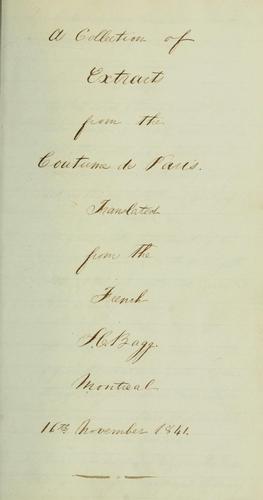 A Collection of
Extracts
from the
Coutume de Paris.
Translated
from the
French
S.C. Bagg.
Montreal
16th November 1841.